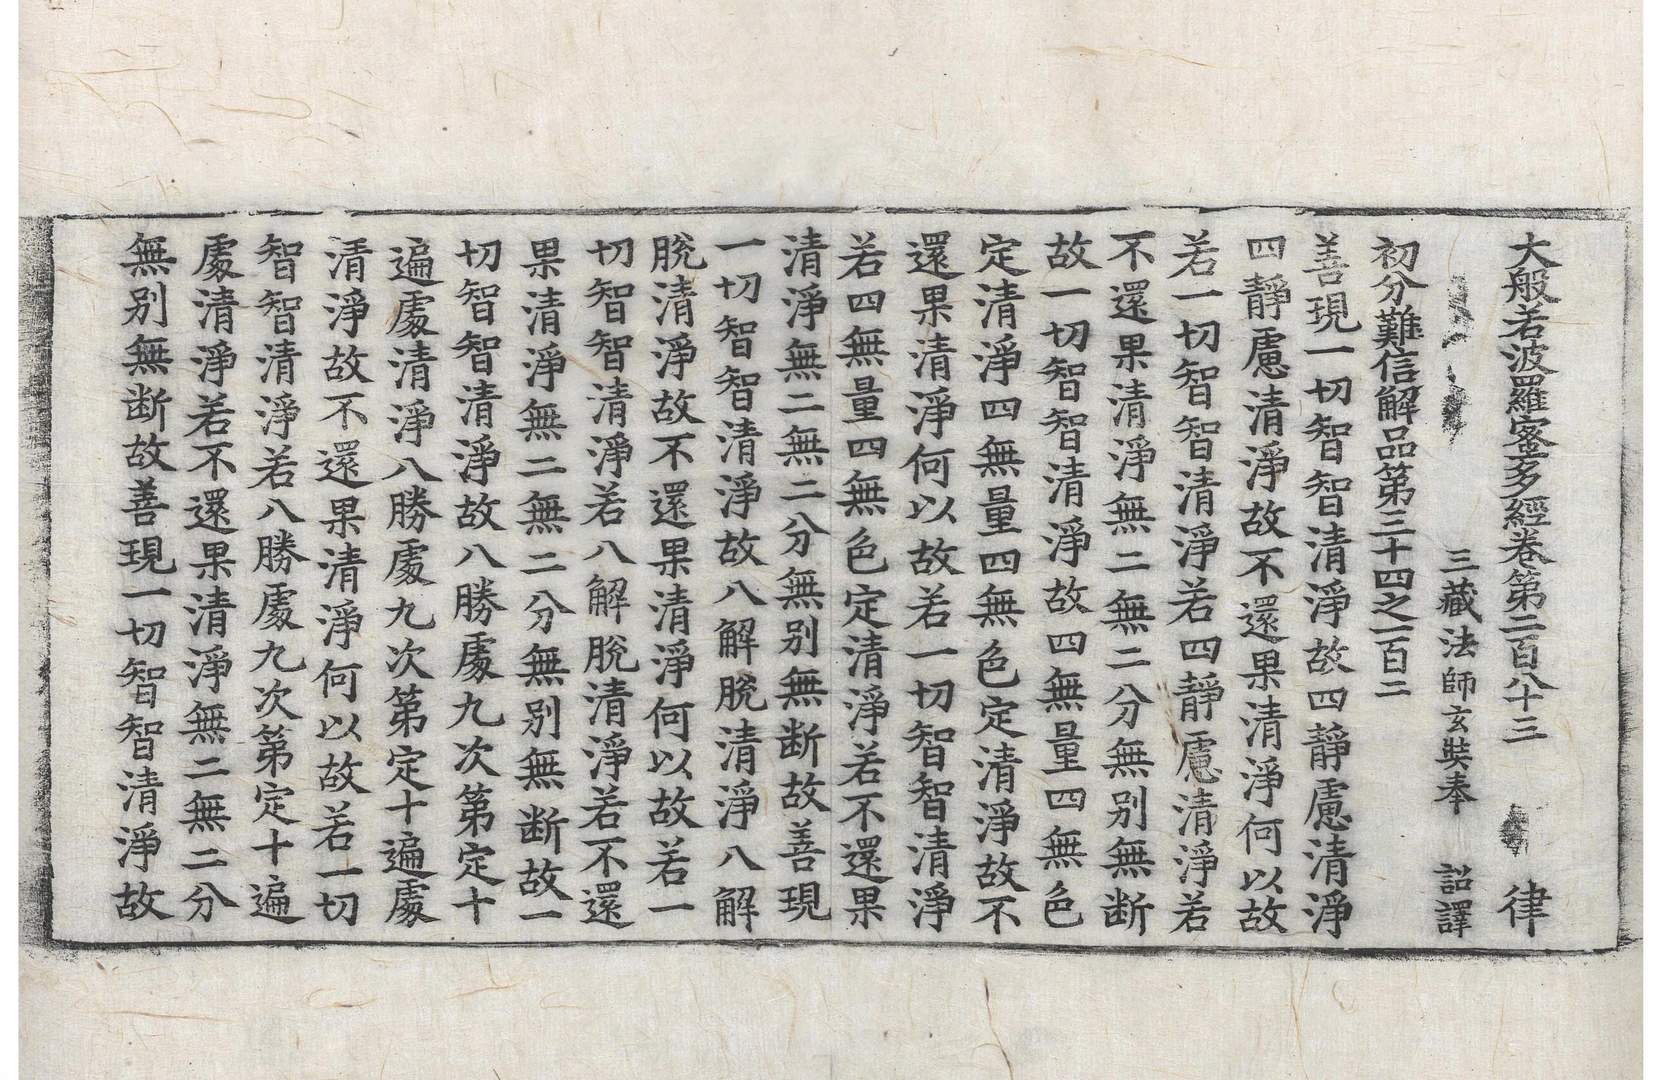 大般若波羅蜜多經卷第二百八十三 律
三藏法師玄奘奉 詔譯
初分難信解品第三十四之一百二
善現一切智智清淨故四靜慮清淨
四靜慮清淨故不還果清淨何以故
若一切智智清淨若四靜慮清淨若
不還果清淨無二無二分無別無断
故一切智智清淨故四無量四無色
定清淨四無量四無色定清淨故不
還果清淨何以故若一切智智清淨
若四無量四無色定清淨若不還果
清淨無二無二分無別無断故善現
一切智智清淨故八解脫清淨八解
脫清淨故不還果清淨何以故若一
切智智清淨若八解脫清淨若不還
果清淨無二無二分無別無断故一
切智智清淨故八勝處九次第定十
遍處清淨八勝處九次第定十遍處
清淨故不還果清淨何以故若一切
智智清淨若八勝處九次第定十遍
處清淨若不還果清淨無二無二分
無別無断故善現一切智智清淨故